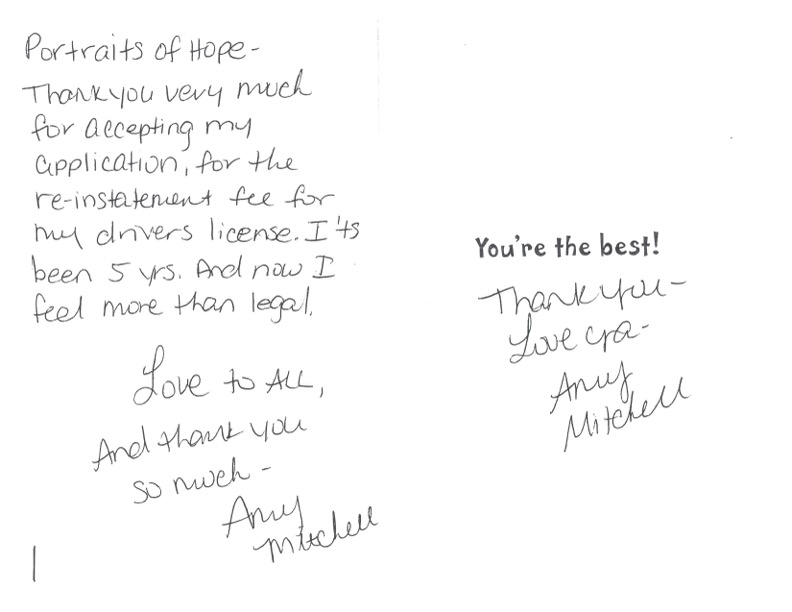 Portraits of Hope-
Thank you very much
for accepting my
application, for the
re-instatement fee for
my drivers license. I'ts
been 5 yrs. And now I
feel more than legal.
Love to ALL,
And thank you
so much -
Amy
Mitchell
You're the best!
Thank you-
Love
Amy
Mitchell